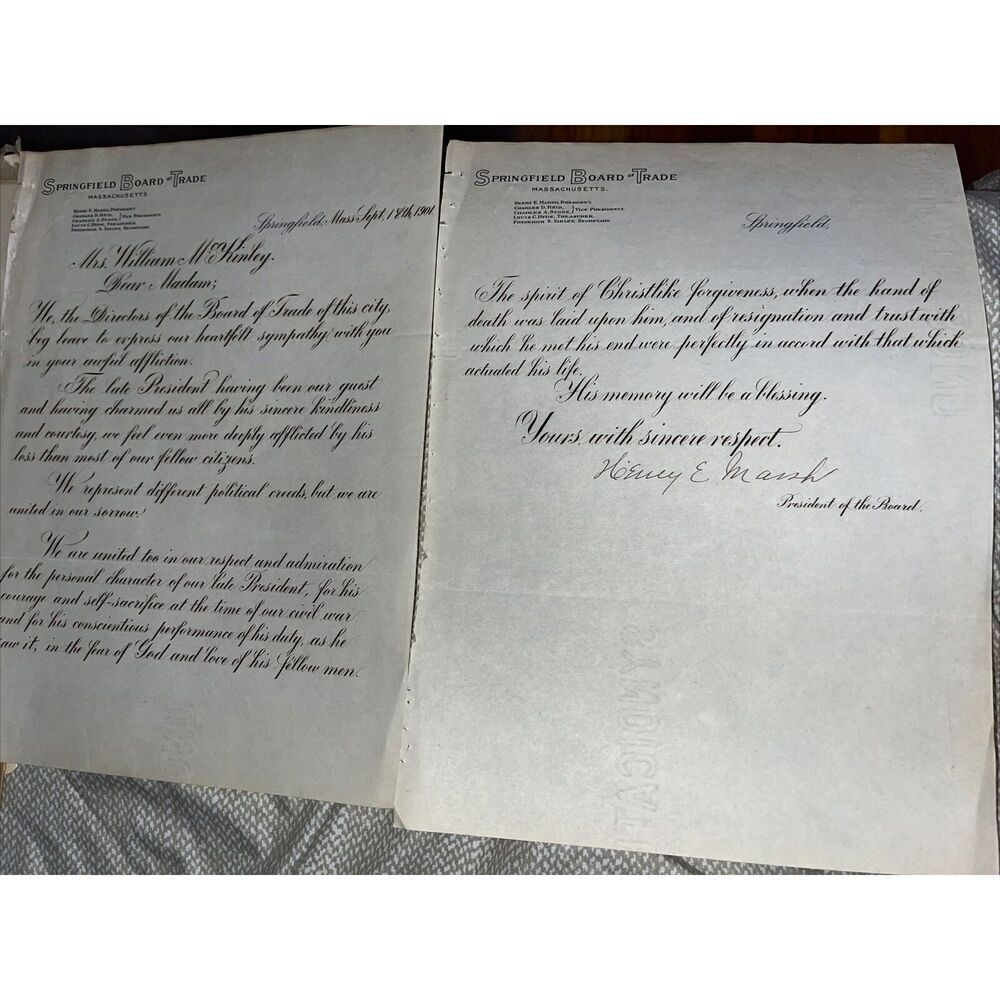 SPRINGFIELD BOARD OF TRADE
MASSACHUSETTS.
HENRY E. MARSH, PRESIDENT.
CHARLES D. REID,
CHARLES A. STONE, VICE PRESIDENTS.
LOUIS C. HYDE, TREASURER.
FREDERICK S. SIBLEY, SECRETARY
Springfield, Mass Sept. 18th 1901.
Mrs. William McKinley.
Dear Madam;
We, the Directors of the Board of Trade of this city,
beg leave to express our heartfelt sympathy with you
in your awful affliction.
The late President having been our guest
and having charmed us all by his sincere kindliness
and courtesy, we feel even more deeply afflicted by his
loss than most of our fellow citizens.
We represent different political creeds, but we are
united in our sorrow.
We are united too in our respect and admiration
for the personal character of our late President, for his
courage and self-sacrifice at the time of our civil war
and for his conscientious performance of his duty, as he
aw it, in the fear of God and love of his fellow men.
SPRINGFIELD BOARD OF TRADE
MASSACHUSETTS.
HENRY E. MARSH, PRESIDENT.
CHARLES D. REID,
CHARLES A. STONE, VICE PRESIDENTS.
LOUIS C. HYDE, TREASURER.
FREDERICK S. SIBLEY, SECRETARY
Springfield,
The spirit of Christlike forgiveness, when the hand of
death was laid upon him, and of resignation and trust with
which he met his end were perfectly in accord with that which
actuated his life.
His memory will be a blessing.
Yours, with sincere respect.
Henry E Marsh
President of the Board.